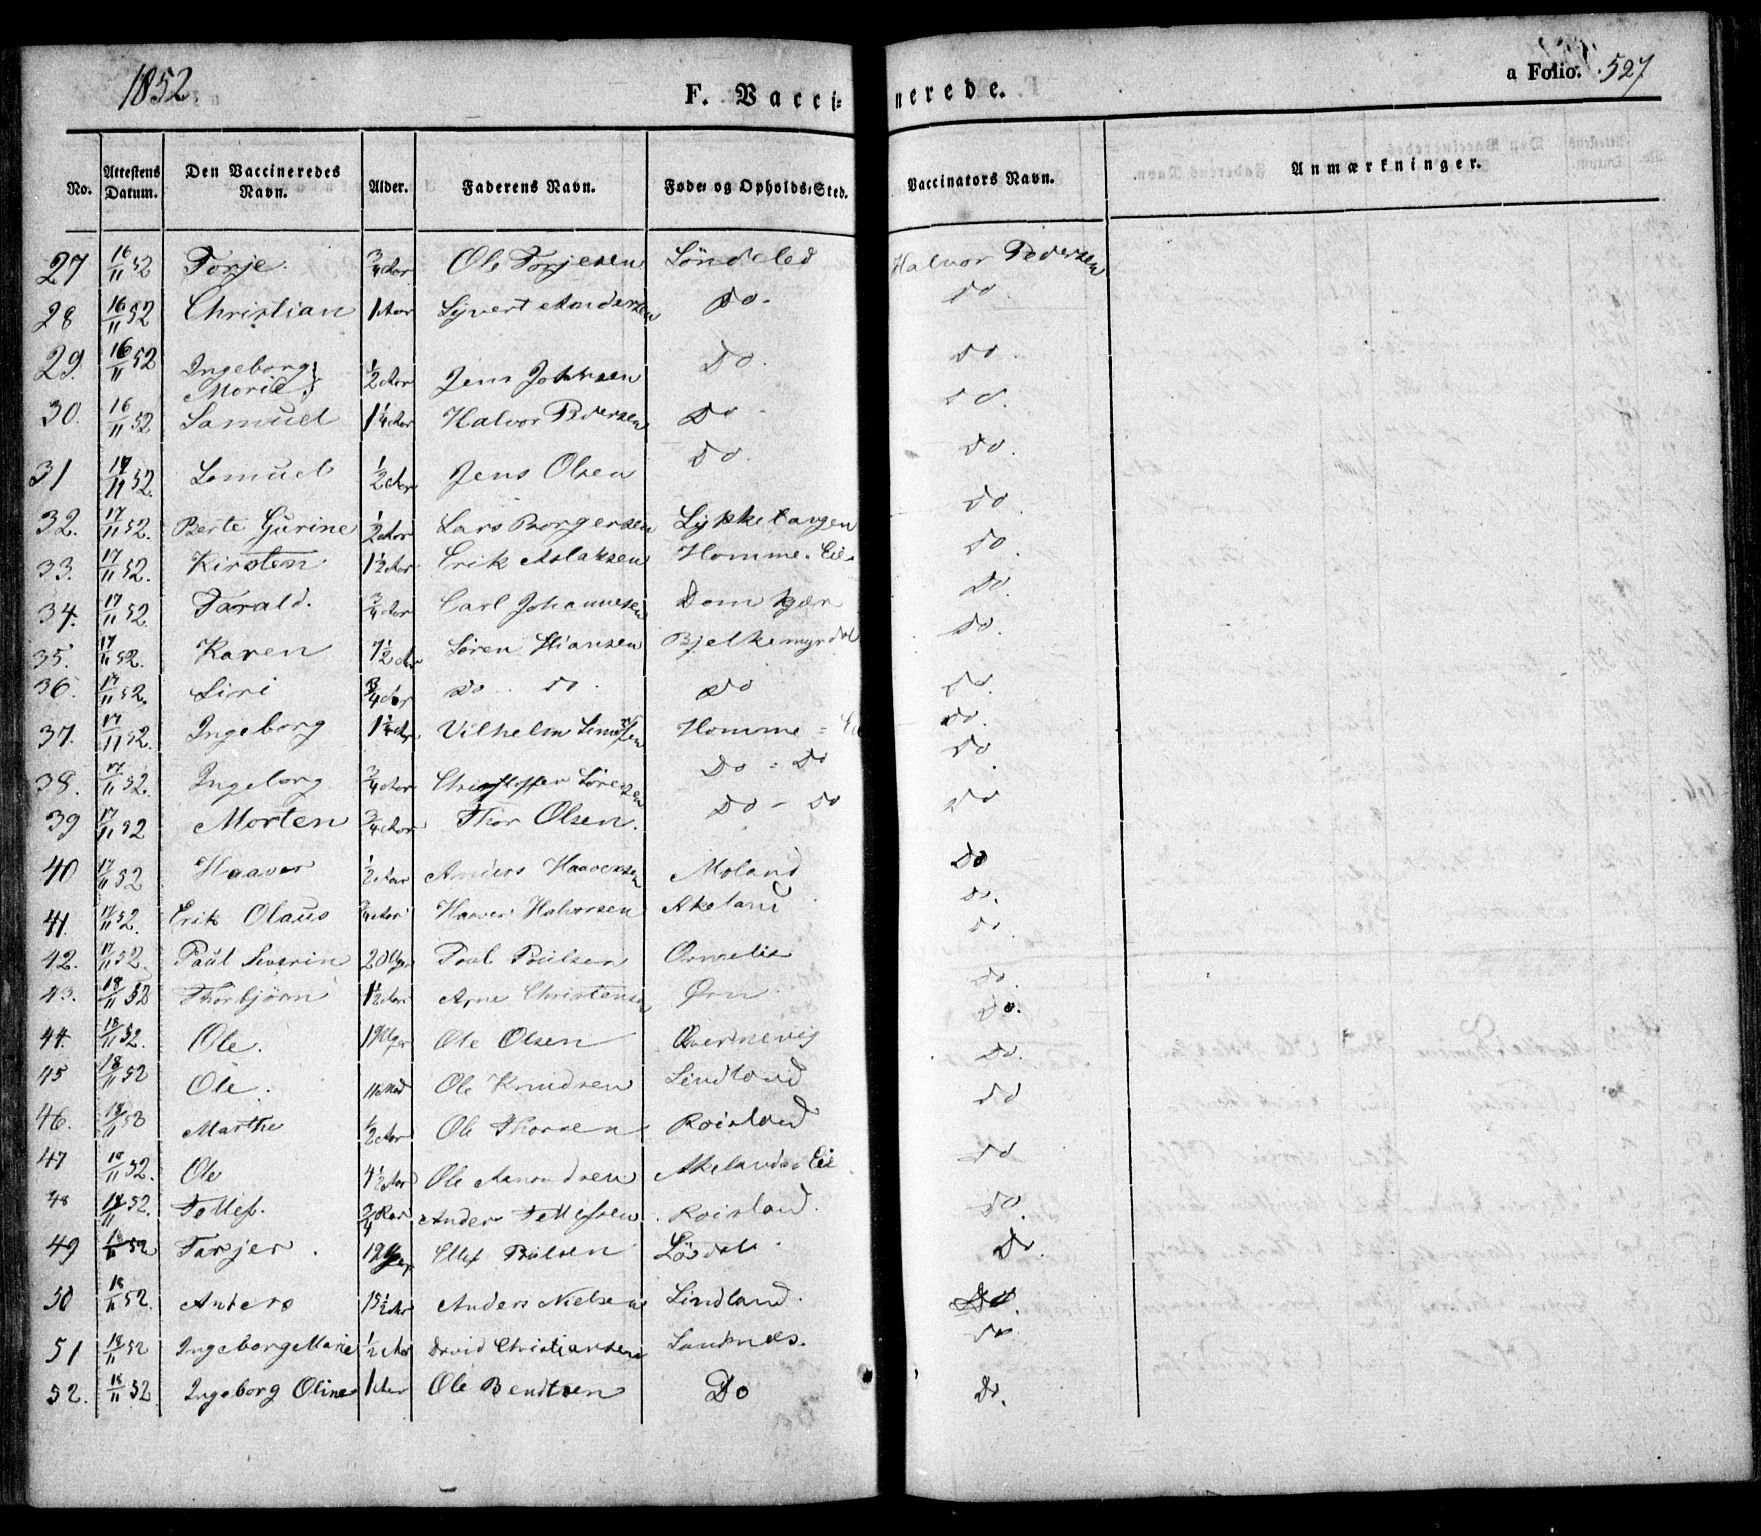 1852
F. Vacci=
nerede.
a Folio. 527
No. Attestens Datum. Den Vaccineredes Navn. Alder. Faderens Navn. Føde= og Opholds=Sted. Vaccinators Navn. Anmærkninger.
27 16/11 52 Torje. 3/4 Aar Ole Torjesen Löndeled Halvor Pedersen
28 16/11 52 Christian 1 Aar Syvert Andersen Do. Do
29. 16/11 52 Ingeborg Marie 1/2 Aar Jens Johnsen Do. Do.
30. 16/11 52 Samuel 1 1/4 Aar Halvor Pedersen Do Do
31 17/11 52. Samuel 1/2 Aar Jens Olsen Do. Do.
32. 17/11 52. Berte Gurine 1/2 Aar Lars Borgersen Lykketangen Do
33. 17/11 52. Kirsten 1 1/2 Aar Erik Aslaksen Homme=Eie Do.
34. 17/11 52. Tarald. 3/4 Aar Carl Johannesen Do.
35. 17/11 52. Karen 7 1/2 Aar Sören Stiansen Bjelkemyrdal Do.
36. 17/11 52. Siri 3/4 Aar Do Do. Do Do.
37. 17/11 52. Ingeborg 1 1/4 Aar Vilhelm Homme = Do.
38. 17/11 52. Ingeborg 3/4 Aar Christoffer Sörensen Do = Do Do.
39 17/11 52 Morten 3/4 Aar Thor Olsen. Do - Do Do
40 17/11 52 Haaver 1/2 Aar Anders Haaversen Moland Do
41. 17/11 52. Erik Olaus 3/4 Aar Haaver Halvorsen Akeland Do.
42. 17/11 52. Paul Severin 20 Uger Poul Poulsen Do.
43. 18/11 52 Thorbjörn 1 1/2 Aar Arne Christensen Örn Do.
44. 18/11 52. Ole. 19 Uger Ole Olsen Do.
45 18/11 52 Ole. 11 Ole Knudsen Lindland Do.
46. 18/11 53 Marthe 1/2 Aar Ole Thorsen Roisland Do
47 18/11 52. Ole 4 1/2 Aar Ole Aanondsen Akelands Eie Do
48 18/11 52. Tellef. 3/4 Aar Anders Tellefsen Roisland. Do.
49 18/11 52 Tarjer. Ellef Do.
50 18/11 52. Anders 15 1/2 Aar Anders Nielsen Lindland. Do.
51 18/11 52 Ingeborg Marie 1/2 Aar David Christiansen Sandnæs. Do
52. 18/11 52 Ingeborg Oline 1 Aar Ole Bendtsen Do Do.